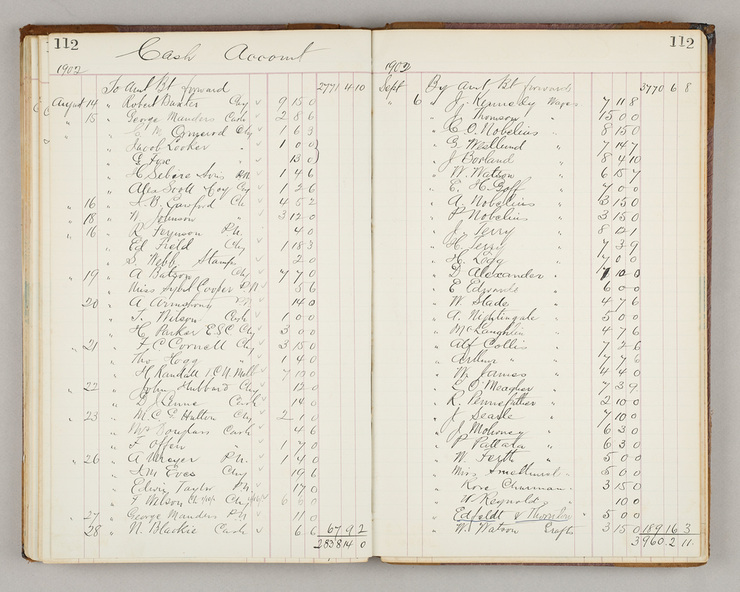 112
Cash Account
1902
To Amt Bt forward 2771 4 10
August 14 " Robert Baxter Chq 9 15 0
" 15 " George Manders Cash 2 8 6
" Ormerod Chq 1 6 3
" Jacob Looker " 1 0 0
" E Fox " 13 0
" H Sebire Avis P.N. 1 4 6
" Alex Scott Coy Chq 1 2 6
" 16 " Gassford Ch 4 5 2
" 18 " W Johnson " 3 12 0
" 16 " R Ferguson P.N. 4 0
" Ed Field Chq 1 18 3
" S. Webb Stamps 2 0
" 19 " A Batson Chq 7 7 0
" Miss Sybil Cooper P.N. 5 6
" 20 " A Armstrong P.N. 14 0
" T. Wilson Cash 1 0 0
" H Parker ESC Chq 3 0 0
" 21 " F C Cornell Chq 3 15 0
" Tho Hogg " 1 4 0
" H Randall 7 10 0
" 22 " John Hubbard Chq 12 0
" Cash 14 0
" 23 " M C C Hutton Chq 2 1 0
" Mr Douglas Cash 4 6
" F Offer " 1 7 0
" 26 " A Mroyer P.N. 1 4 0
" Eves Chq 19 6
" Edwin Taylor P.N. 17 0
" F Wilson
" 27 " George Manders P.N. 11 0
" 28 " N. Blackie Cash 6 6 67 9 2
2838 14 0
112
1902
Sept By Amt Bt forward 3770 6 8
" 6 " J. Kennedy Wages 7 11 8
" J Thomson " 15 0 0
" C. O. Nobelius " 8 15 0
" G. Wellund " 7 14 7
" J Borland " 8 4 10
" W. Watson " 6 15 7
" E. H. Goff " 7 0 0
" A. Nobelius " 3 15 0
" P. Nobelius " 3 15 0
" J. Terry " 8 2 1
" H. Terry " 7 3 9
" H. Legg " 7 0 0
" D Alexander " 7 10 0
" E Edwards " 6 0 0
" W Slade " 4 7 6
" A. Nightingale " 5 0 0
" McLaughlin " 4 7 6
" Alf Collis " 7 2 6
" Arthur " " 7 7 6
" W. James " 4 4 0
" C O Meagher " 7 3 9
" R. Pennefather " 2 10 0
" J Searle " 7 10 0
" J Mahoney " 6 3 0
" P Pattalu " 6 3 0
" W. Firth " 5 0 0
" Miss Smethurst " 5 0 0
" Rose Chapman " 3 15 0
" W Reynolds " 10 0
" Edfeldt & " 5 0 0
" W. Watson Grafts 3 15 0 189 16 3
3960 2 11